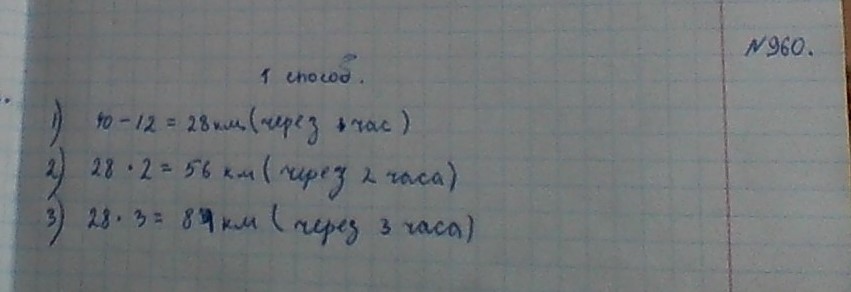 N960.
1 способ.
1) 40-12 = 28км (через 1 час)
2) 28 · 2 = 56 км (через 2 часа)
3) 28 · 3 = 84 км (через 3 часа)